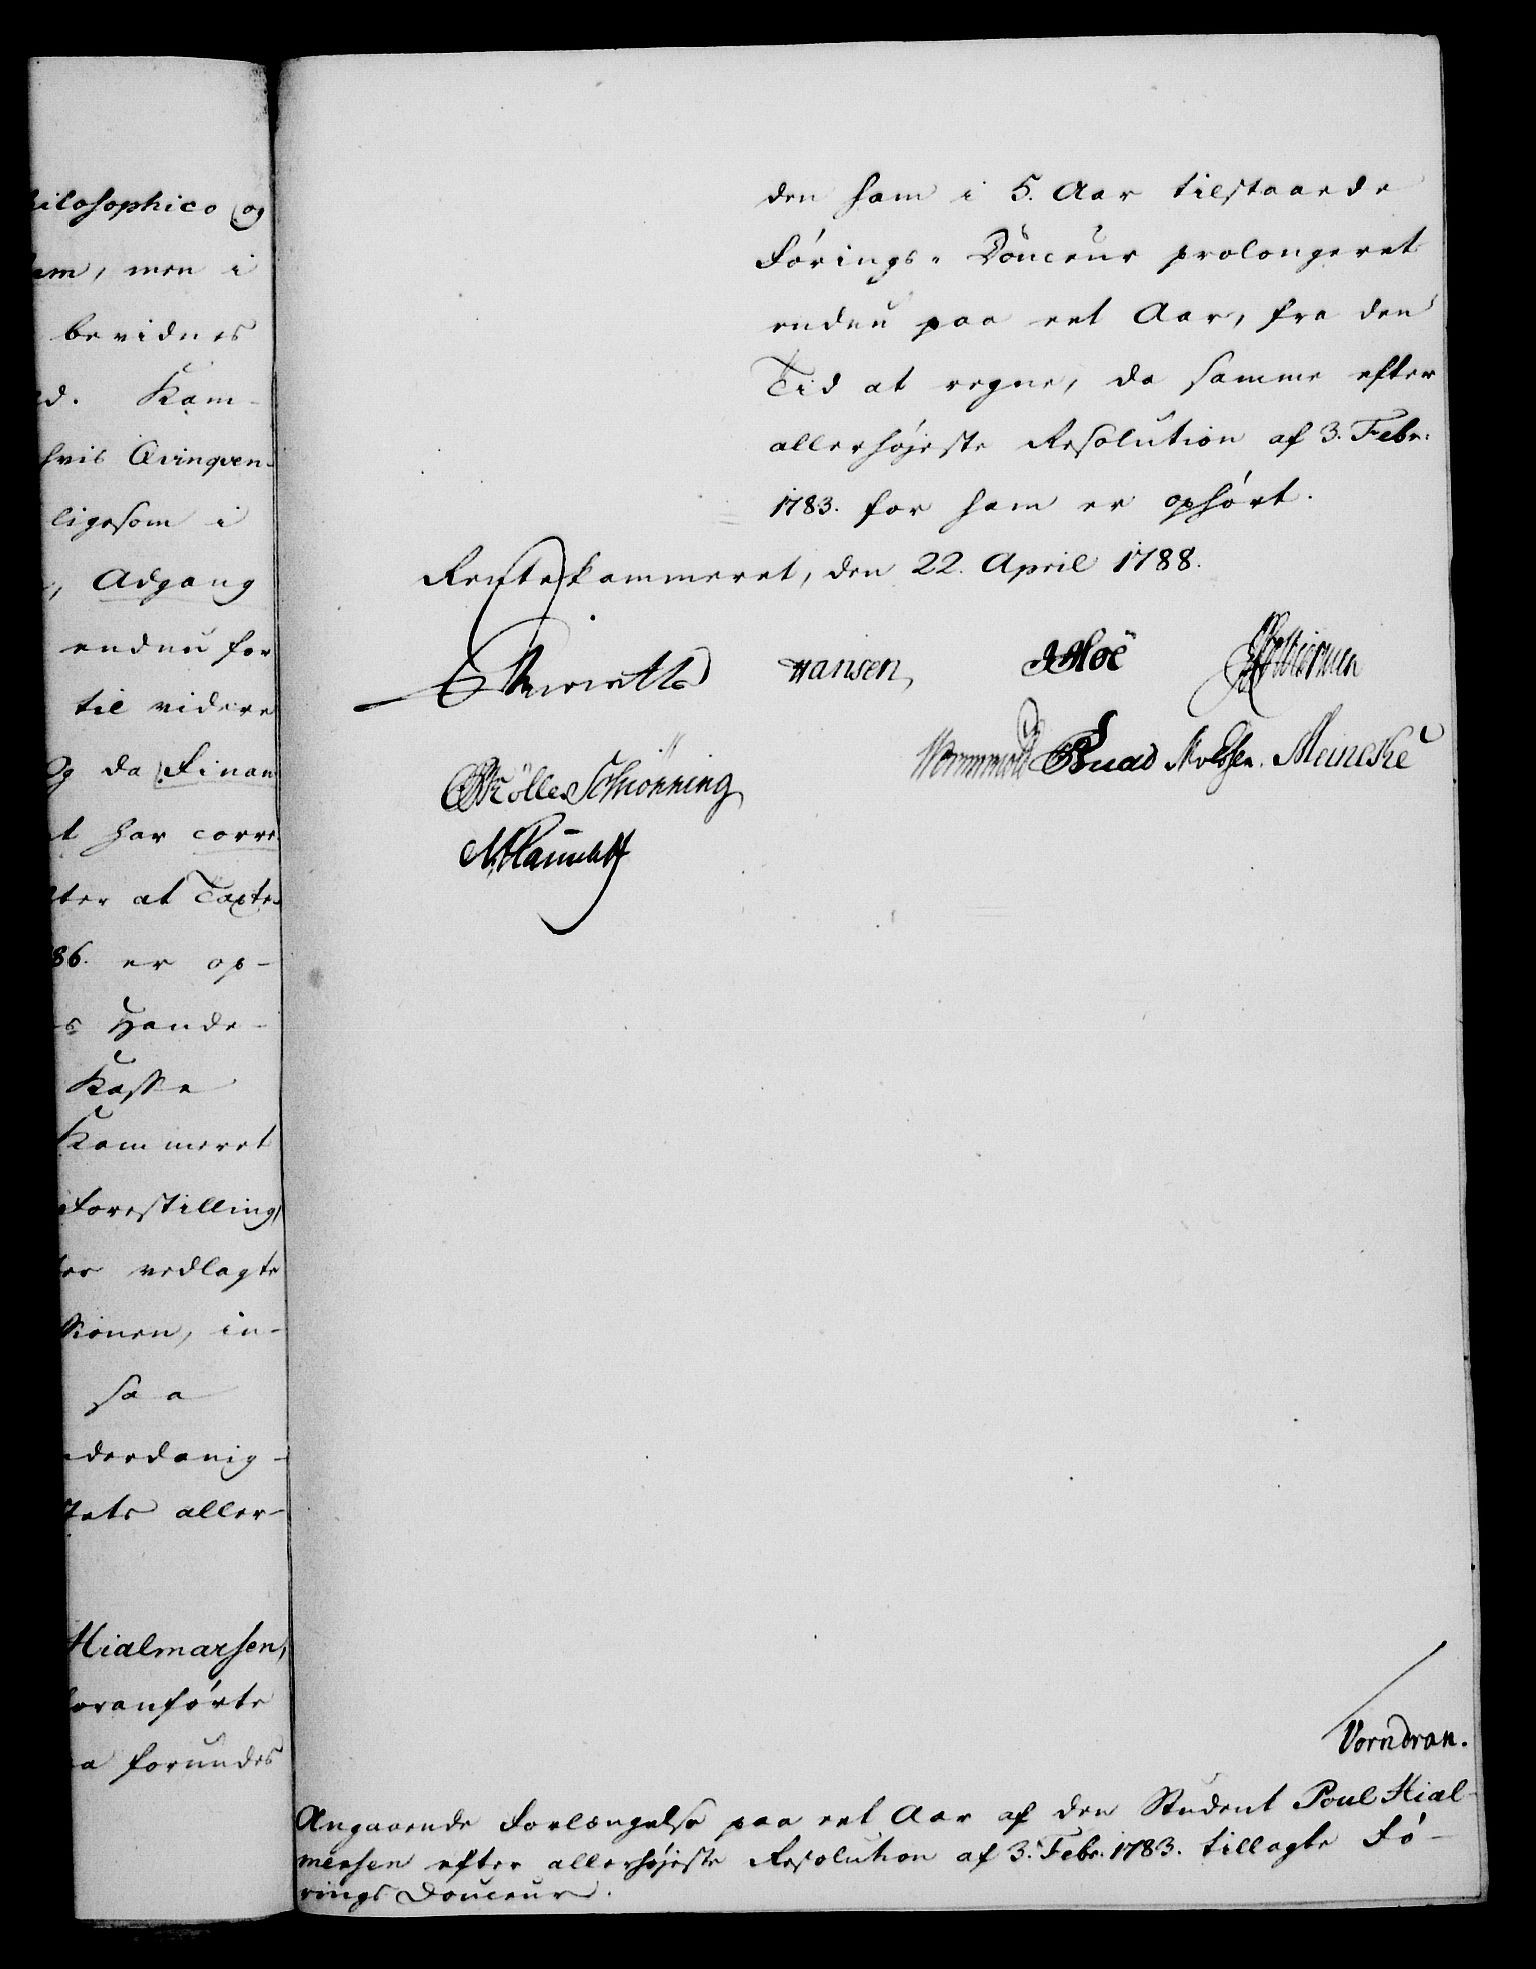 ilosophico og
em, men i
bevidnes
d. Kam-
hvis Qvinqven-
ligesom i
, Adgang
endnu for
til videre
Og da Finan
t har corre
ter at Taxte
86. er op-
s Hande-
Kasse
Kammeret
Forestilling
er vedlagte
sionen, in-
saa
derdanig-
tets aller-
Hialmarsen,
foranførte
a forundes
den ham i 5. Aar tilstaaede
Førings-Douceur prolongeret
endnu paa eet Aar, fra den
Tid at regne, da samme efter
allerhøjeste Resolution af 3. Febr:
1783. for ham er ophørt.
Rentekammeret, den 22. April 1788.
Hansen, Hoë
Möller Schiönning Wormwold Knad Meineke
Vorndran.
Angaaende Forlængelse paa eet Aar af den Student Poul Hial-
mersen efter allerhøjeste Resolution af 3. Febr. 1783. tillagte Fø-
rings Douceur.